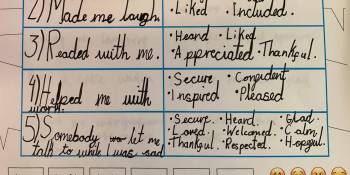 2) Made me laugh.
• Liked • Included.
3) Readed with me.
• Heard • Liked
• Appreciated • Thankful.
4) Helped me with
work.
• Secure • Confident
• Inspired • Pleased
5) Somebody let me
talk to while I was sad
• Secure. • Heard. • Glad.
• Loved. • Welcomed. • Calm.
• Thankful. • Respected. • Hopeful.